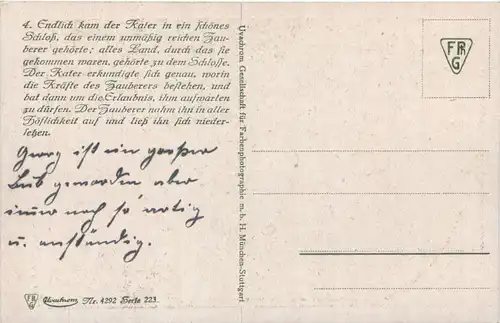 4. Endlich kam der Kater in ein schönes
Schloß, das einem unmäßig reichen Zau-
berer gehörte; alles Land, durch das sie
gekommen waren, gehörte zu dem Schlosse.
Der Kater erkundigte sich genau, worin
die Kräfte des Zauberers bestehen, und
bat dann um die Erlaubnis, ihm aufwarten
zu dürfen. Der Zauberer nahm ihn in aller
Höflichkeit auf und ließ ihn sich nieder-
setzen.
Georg ist ein großer
Bub geworden aber
immer noch so artig
u. anständig.
Uvachrom Gesellschaft für Farbenphotographie m. b. H. München-Stuttgart
FPR
G
FPR
G
Uvachrom Nr. 4292 Serie 223